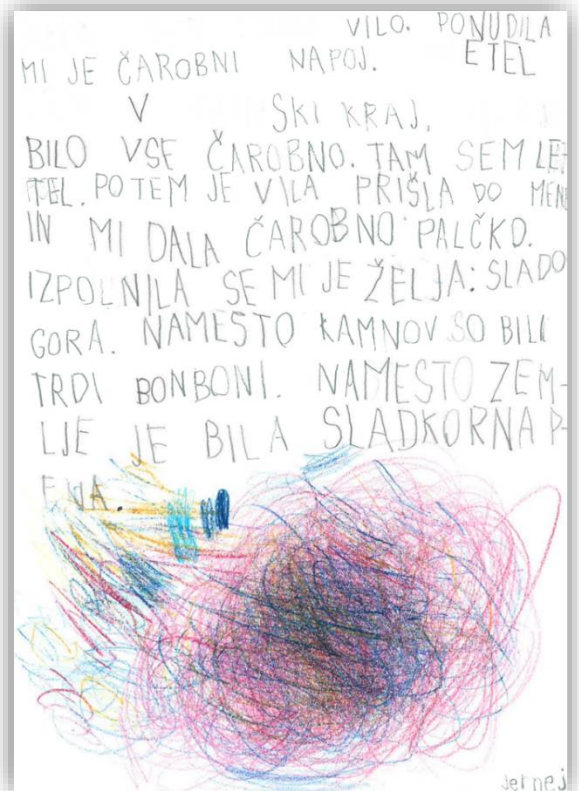 VILO. PONUDILA
MI JE ČAROBNI NAPOJ. ETEL
V SKI KRAJ,
BILO VSE ČAROBNO. TAM SEM LE
TEL. POTEM JE VILA PRIŠLA DO MENE
IN MI DALA ČAROBNO PALČKO.
IZPOLNILA SE MI JE ŽELJA: SLADO
GORA. NAMESTO KAMNOV SO BILI
TRDI BONBONI. NAMESTO ZEM-
LJE JE BILA SLADKORNA P-
ENA.
Jernej